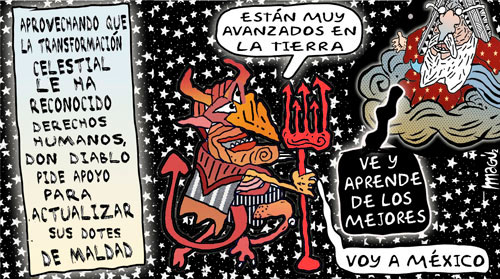 APROVECHANDO QUE
LA TRANSFORMACIÓN
CELESTIAL
LE HA
RECONOCIDO
DERECHOS
HUMANOS,
DON DIABLO
PIDE APOYO
PARA
ACTUALIZAR
SUS DOTES
DE MALDAD
ESTÁN MUY
AVANZADOS EN
LA TIERRA
VE Y
APRENDE
DE LOS
MEJORES
VOY A MÉXICO
magú